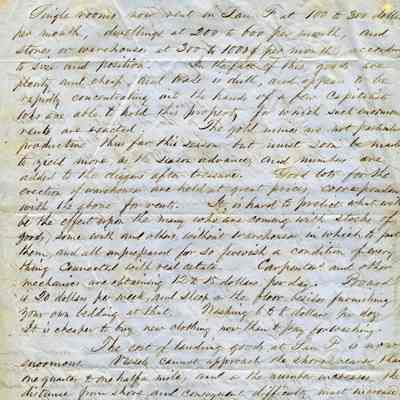 Single rooms, now rent in San F. at 100 to 300 dolls
per month, dwellings at 200 to 600 per month, and
stores or warehouses at 300 to 1000$ per month according
to size and position. In the face of this goods are
plenty and cheap, and trade is dull, and appears to be
rapidly concentrating into the hands of a few Capitalists
who are able to hold this property for which such enormous
rents are exacted. The gold mines are not particularly
productive thus far this season but must soon be made
to yield more as the season advances and numbers are
added to the diggers after treasure. Good lots for the
erection of warehouses are held at great prices corresponding
with the above for rents. It is hard to predict what will
be the effect upon the many who are coming with stocks of
goods, some with and others without warehouses in which to put
them, and all unprepared for so feverish a condition of every
thing connected with real estate. Carpenters and other
mechanics are obtaining 12 to 15 dollars per day. Board
is 20 dollars per week, and sleep on the floor besides furnishing
your own bedding at that. Washing 6 to 8 dollars per doz.
It is cheaper to buy new clothing now than to pay for washing.
The cost of landing goods at San F. is now
enormous. Vessels cannot approach the shore nearer than
one quarter to one half a mile, and as the number increases the
distance from shore and consequent difficulty must increase